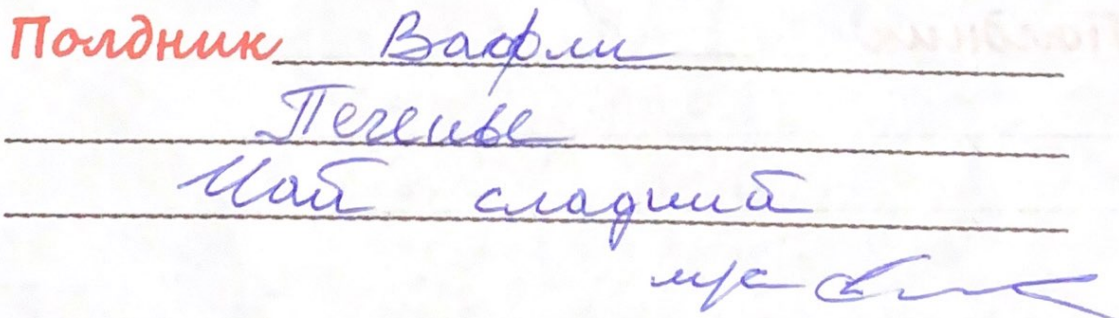 Полдник Вафли
Печенье
Чай сладкий
м/с